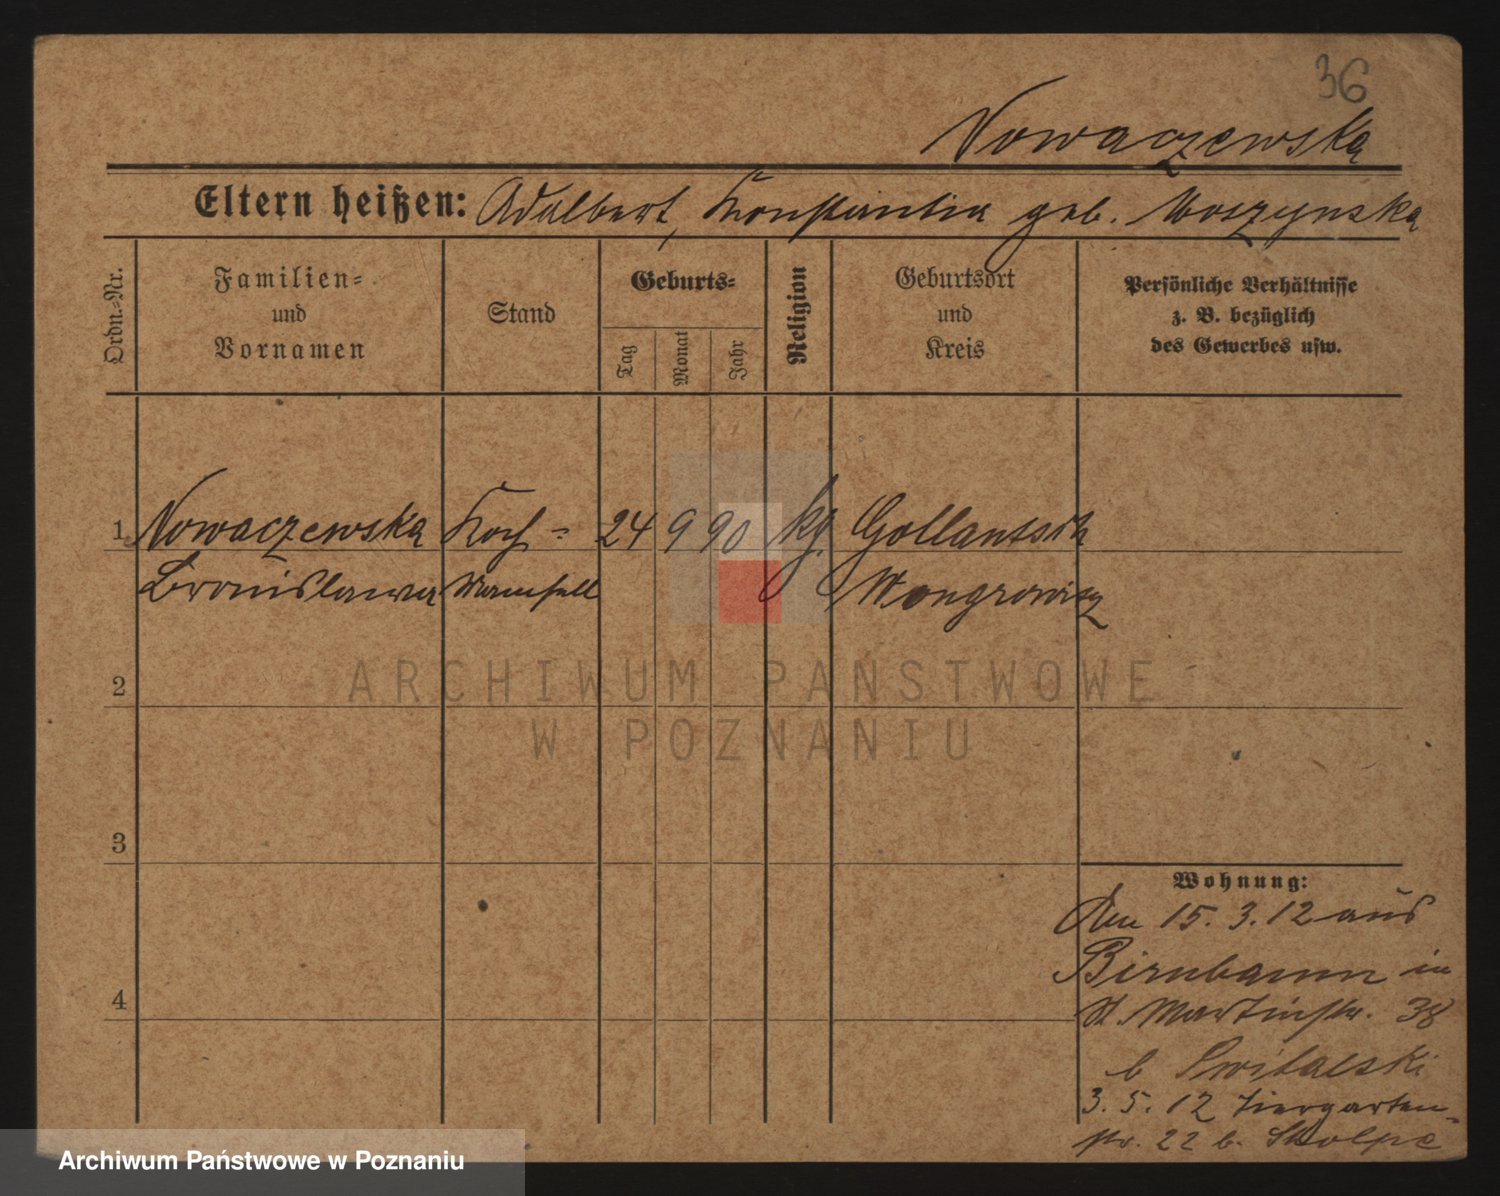 36
Nowaczewska
Eltern heißen: Adalbert, Konstantia geb. Moszynska
Ordn.-Nr.
Familien-
und
Vornamen
Stand
Geburts-
Tag
Monat
Jahr
Religion
Geburtsort
und
Kreis
Persönliche Verhältnisse
z. B. bezüglich
des Gewerbes usw.
1 Nowaczewska Koch- 24 9 90 kg. Gollantsch
Bronislawa Mamsell Wongrowitz
2
ARCHIWUM PAŃSTWOWE
W POZNANIU
3
Wohnung:
Am 15. 3. 12 aus
Birnbaum in
4
St. Martinstr. 38
b
3. 5. 12 Tiergarten-
str. 22 b.
Archiwum Państwowe w Poznaniu